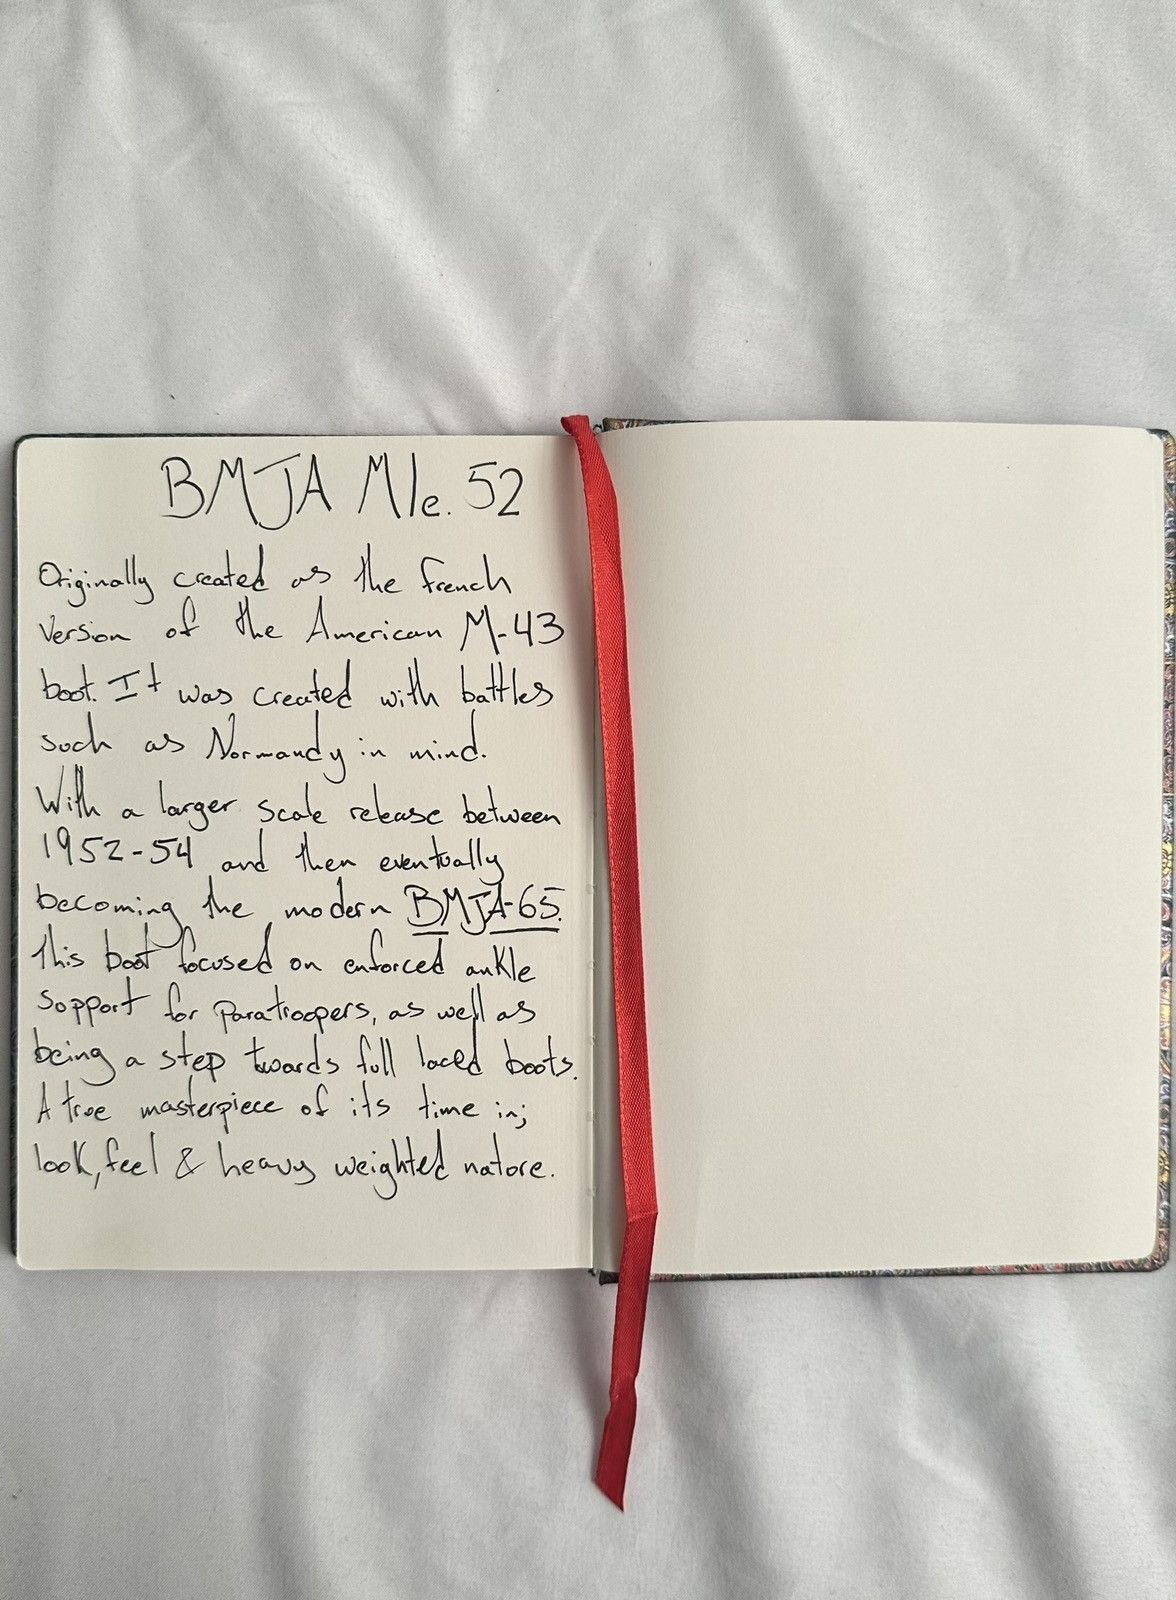 BMJA Mle. 52
Originally created as the french
version of the American M-43
boot. It was created with battles
such as Normandy in mind.
With a larger scale release between
1952-54 and then eventually
becoming the modern BMJA-65.
This boot focused on enforced ankle
support for paratroopers, as well as
being a step twards full laced boots.
A true masterpiece of its time in;
look, feel & heavy weighted nature.